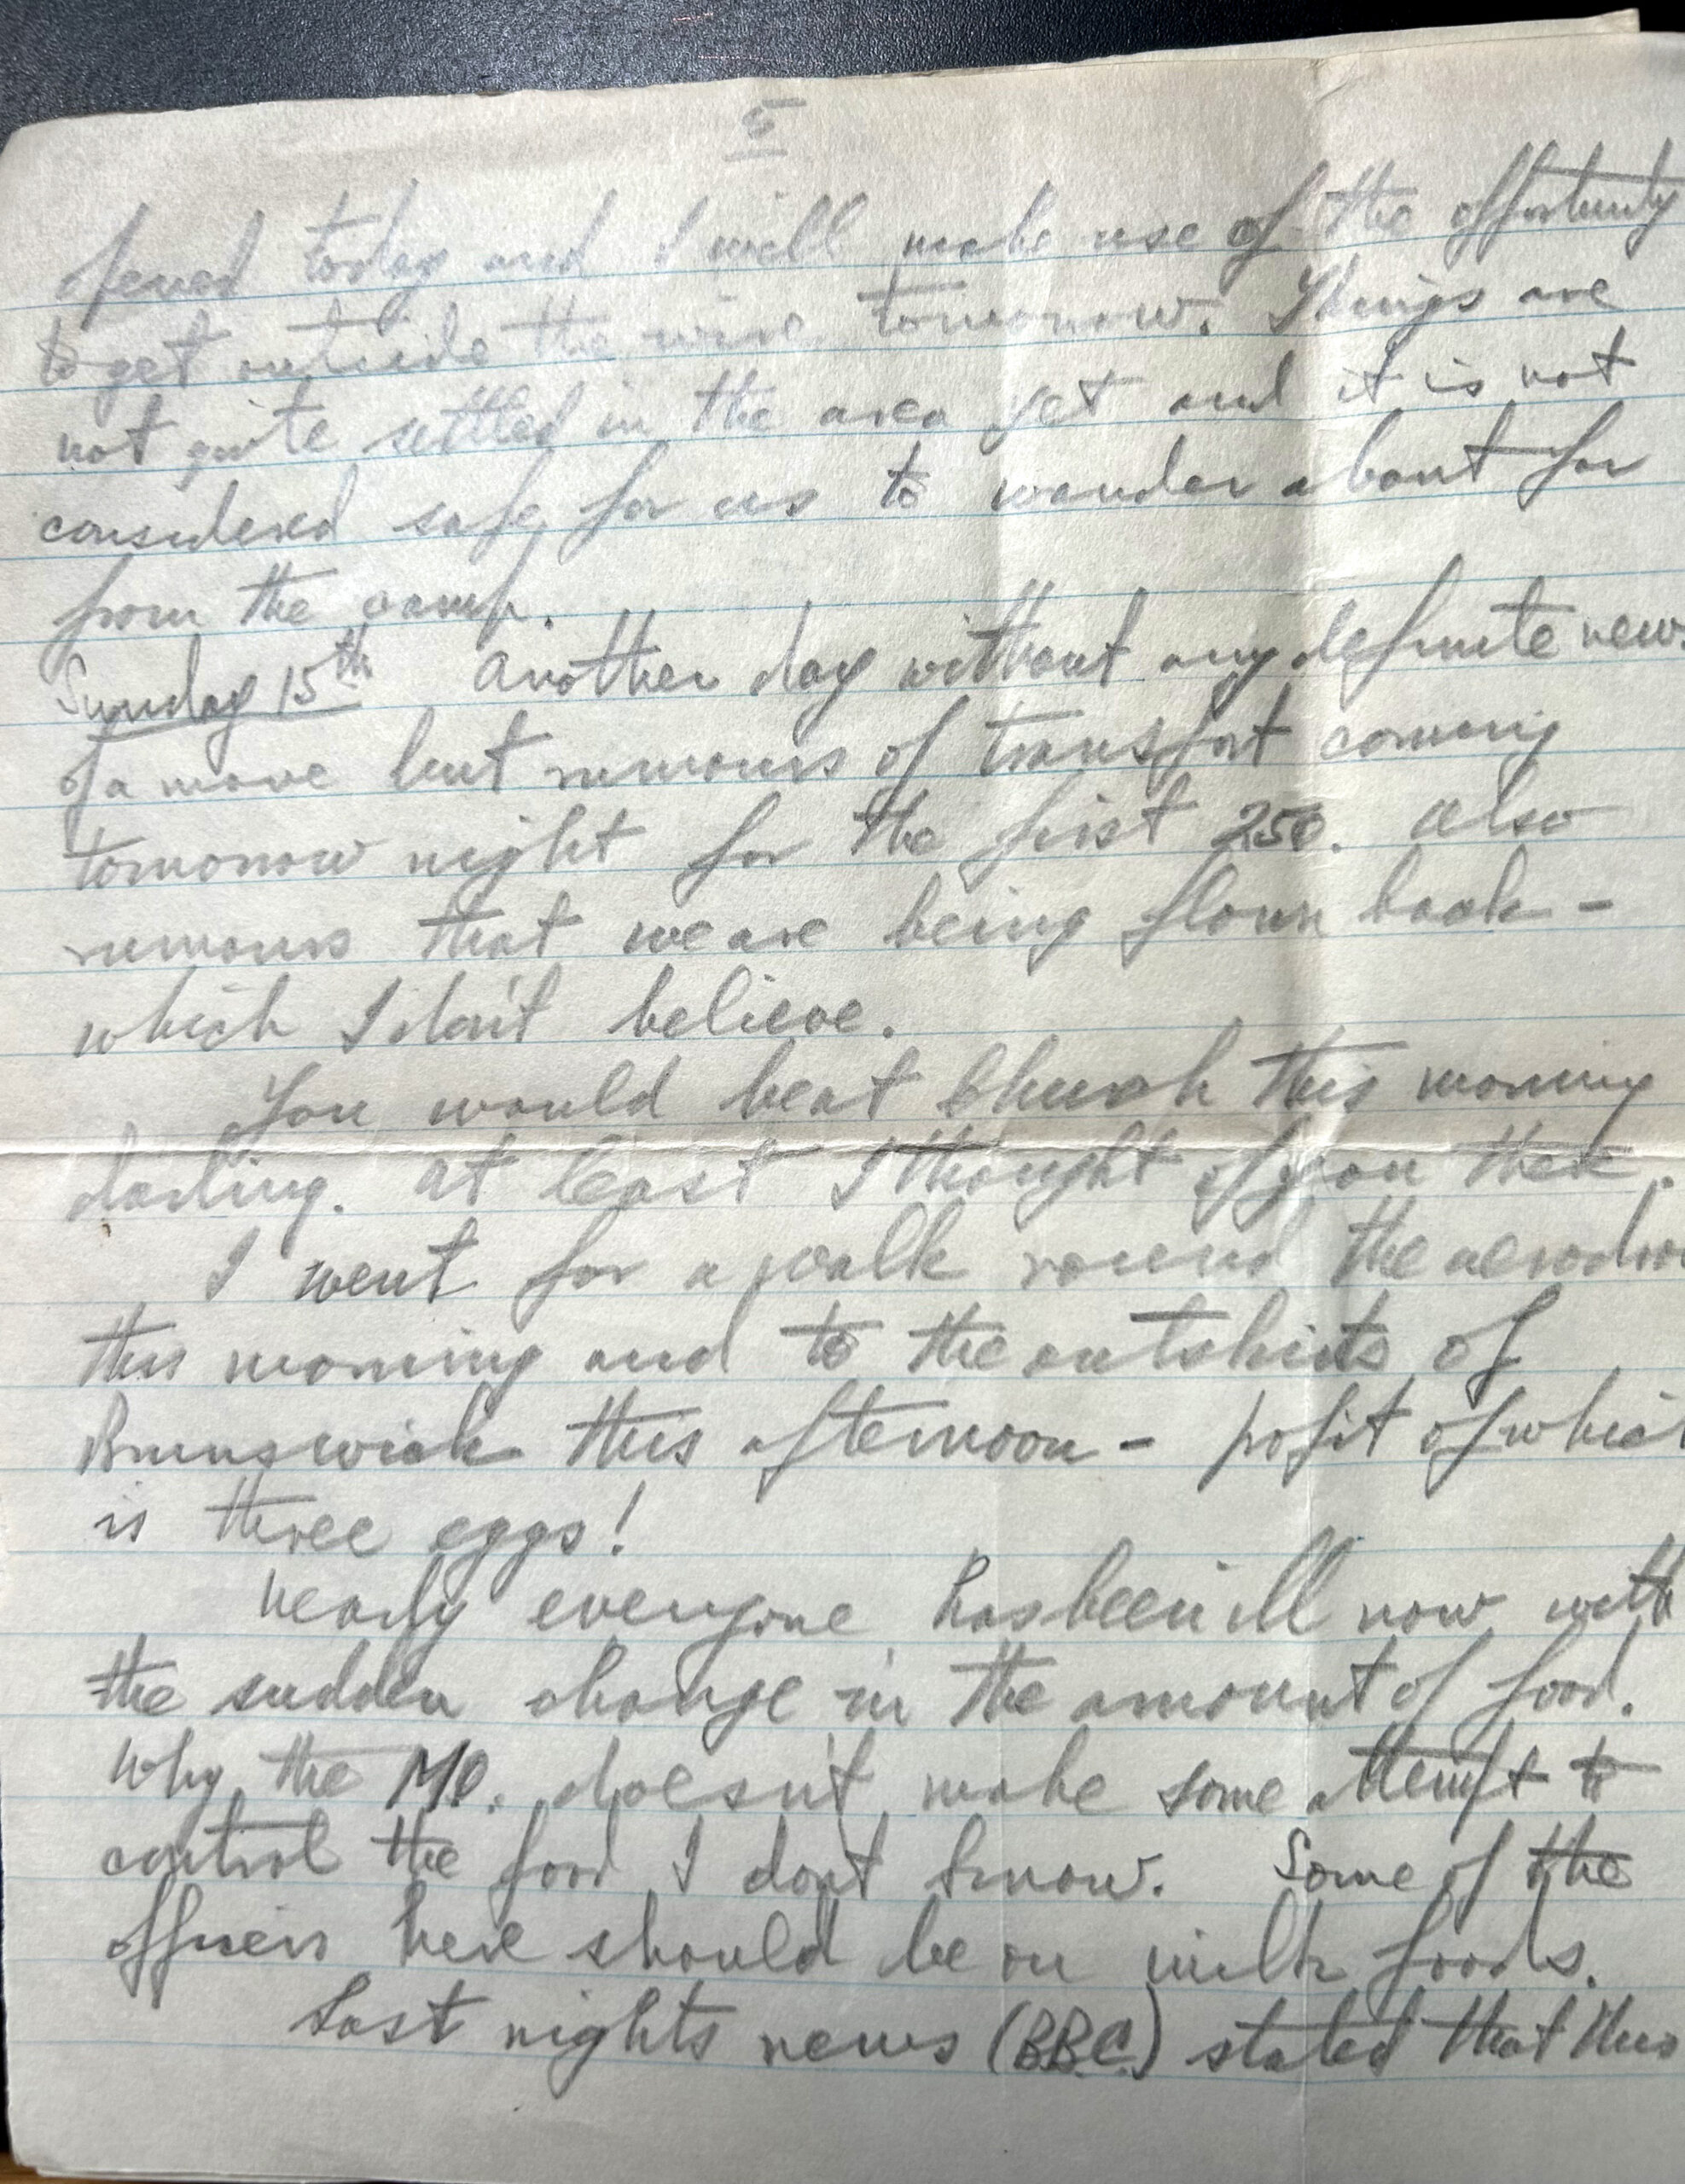 5
opened today and I will make use of the opportunity
to get outside the wire tomorrow. Things are
not quite settled in the area yet and it is not
considered safe for us to wander about far
from the camp.
Sunday 15th Another day without any definite news
of a move but rumours of transport coming
tomorrow night for the first 250. Also
rumours that we are being flown back -
which I don't believe.
You would be at Church this morning
darling. At least I thought of you there.
I went for a walk round the
this morning and to the outskirts of
Brunswick this afternoon - profit of which
is three eggs!
Nearly everyone has been ill now with
the sudden change in the amount of food.
Why the MO. doesn't make some attempt to
control the food I don't know. Some of the
officers here should be on milk foods.
Last nights news (BBC.) stated that this